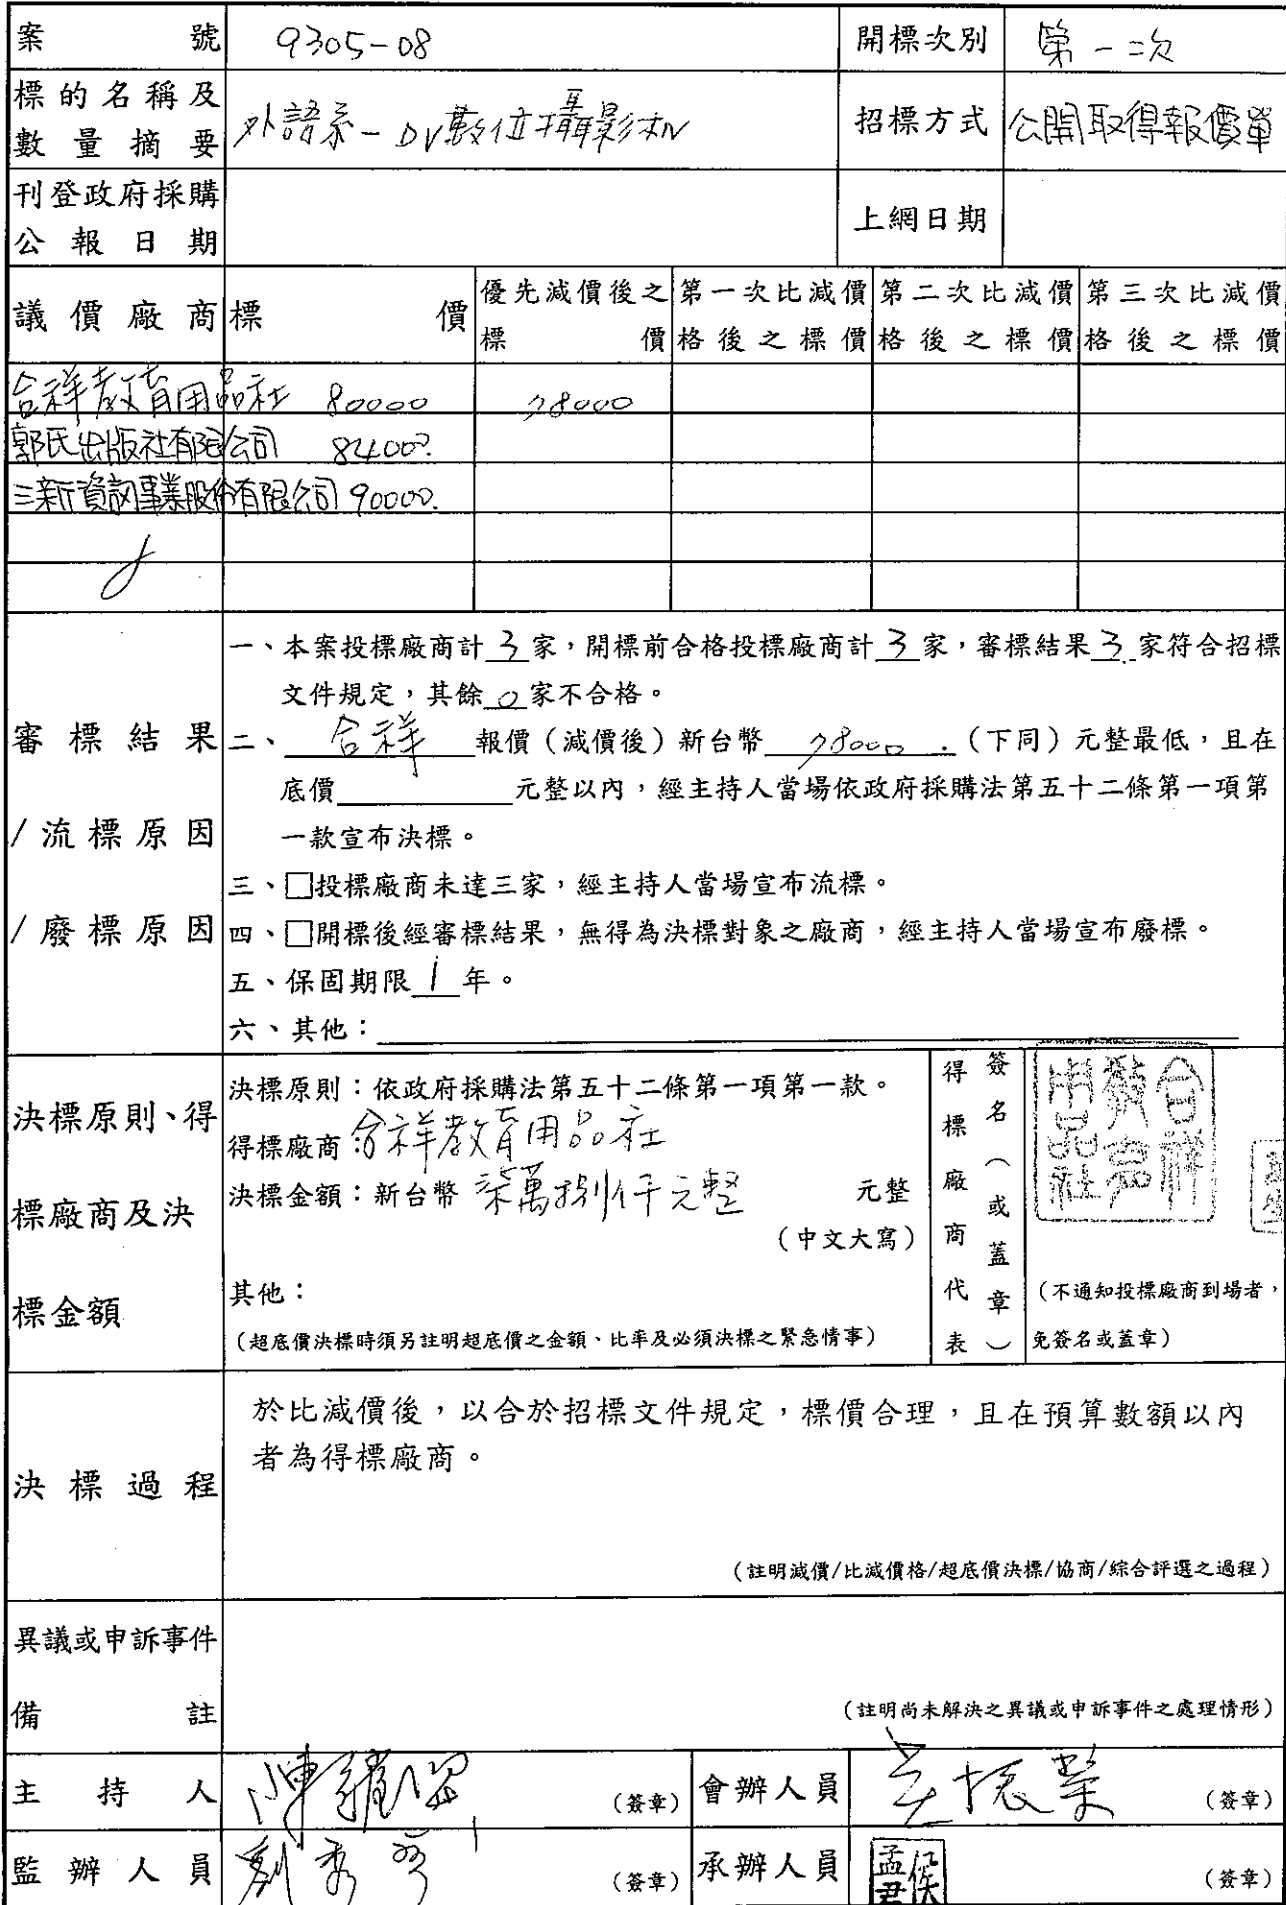 案號 9305-08 開標次別 第一次
標的名稱及數量摘要 外語系-DV數位攝影機 招標方式 公開取得報價單
刊登政府採購公報日期 上網日期
議價廠商 標價 優先減價後之標價 第一次比減價格後之標價 第二次比減價格後之標價 第三次比減價格後之標價
合祥教育用品社 80000 78000
郭氏出版社有限公司 82400
三新資訊事業股份有限公司 90000.
審標結果/流標原因/廢標原因
一、本案投標廠商計3家,開標前合格投標廠商計3家,審標結果3家符合招標
文件規定,其餘0家不合格。
二、合祥報價(減價後)新台幣78000.(下同)元整最低,且在
底價元整以內,經主持人當場依政府採購法第五十二條第一項第
一款宣布決標。
三、□投標廠商未達三家,經主持人當場宣布流標。
四、□開標後經審標結果,無得為決標對象之廠商,經主持人當場宣布廢標。
五、保固期限1年。
六、其他:
決標原則、得標廠商及決標金額
決標原則:依政府採購法第五十二條第一項第一款。
得標廠商:合祥教育用品社
決標金額:新台幣 柒萬捌仟元整 元整
(中文大寫)
其他:
(超底價決標時須另註明超底價之金額、比率及必須決標之緊急情事)
得標廠商代表
簽名(或蓋章)
合祥教育用品社
(不通知投標廠商到場者,
免簽名或蓋章)
決標過程
於比減價後,以合於招標文件規定,標價合理,且在預算數額以內
者為得標廠商。
(註明減價/比減價格/超底價決標/協商/綜合評選之過程)
異議或申訴事件
備註
(註明尚未解決之異議或申訴事件之處理情形)
主持人 (簽章) 會辦人員 (簽章)
監辦人員 劉秀 (簽章) 承辦人員 孟君 (簽章)